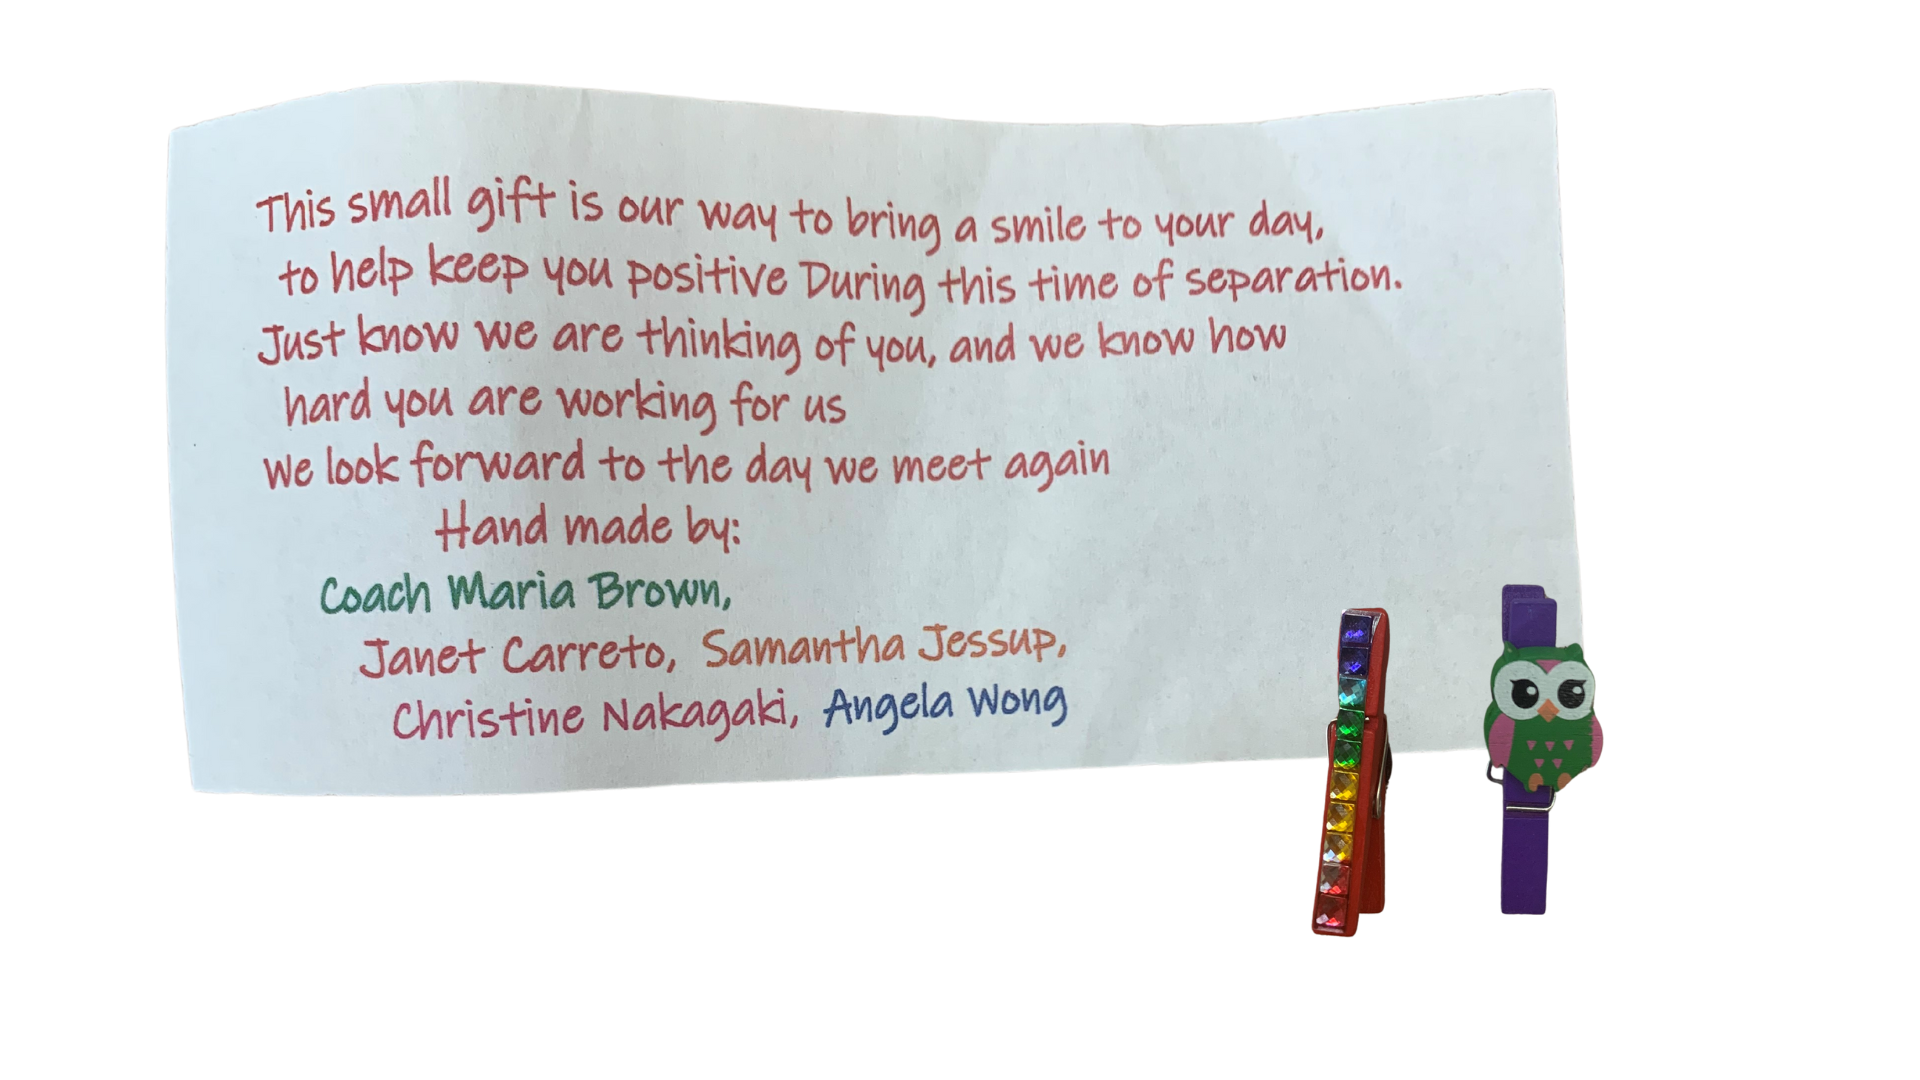 This small gift is our way to bring a smile to your day,
to help keep you positive During this time of separation.
Just know we are thinking of you, and we know how
hard you are working for us
We look forward to the day we meet again
Hand made by:
Coach Maria Brown,
Janet Carreto, Samantha Jessup,
Christine Nakagaki, Angela Wong